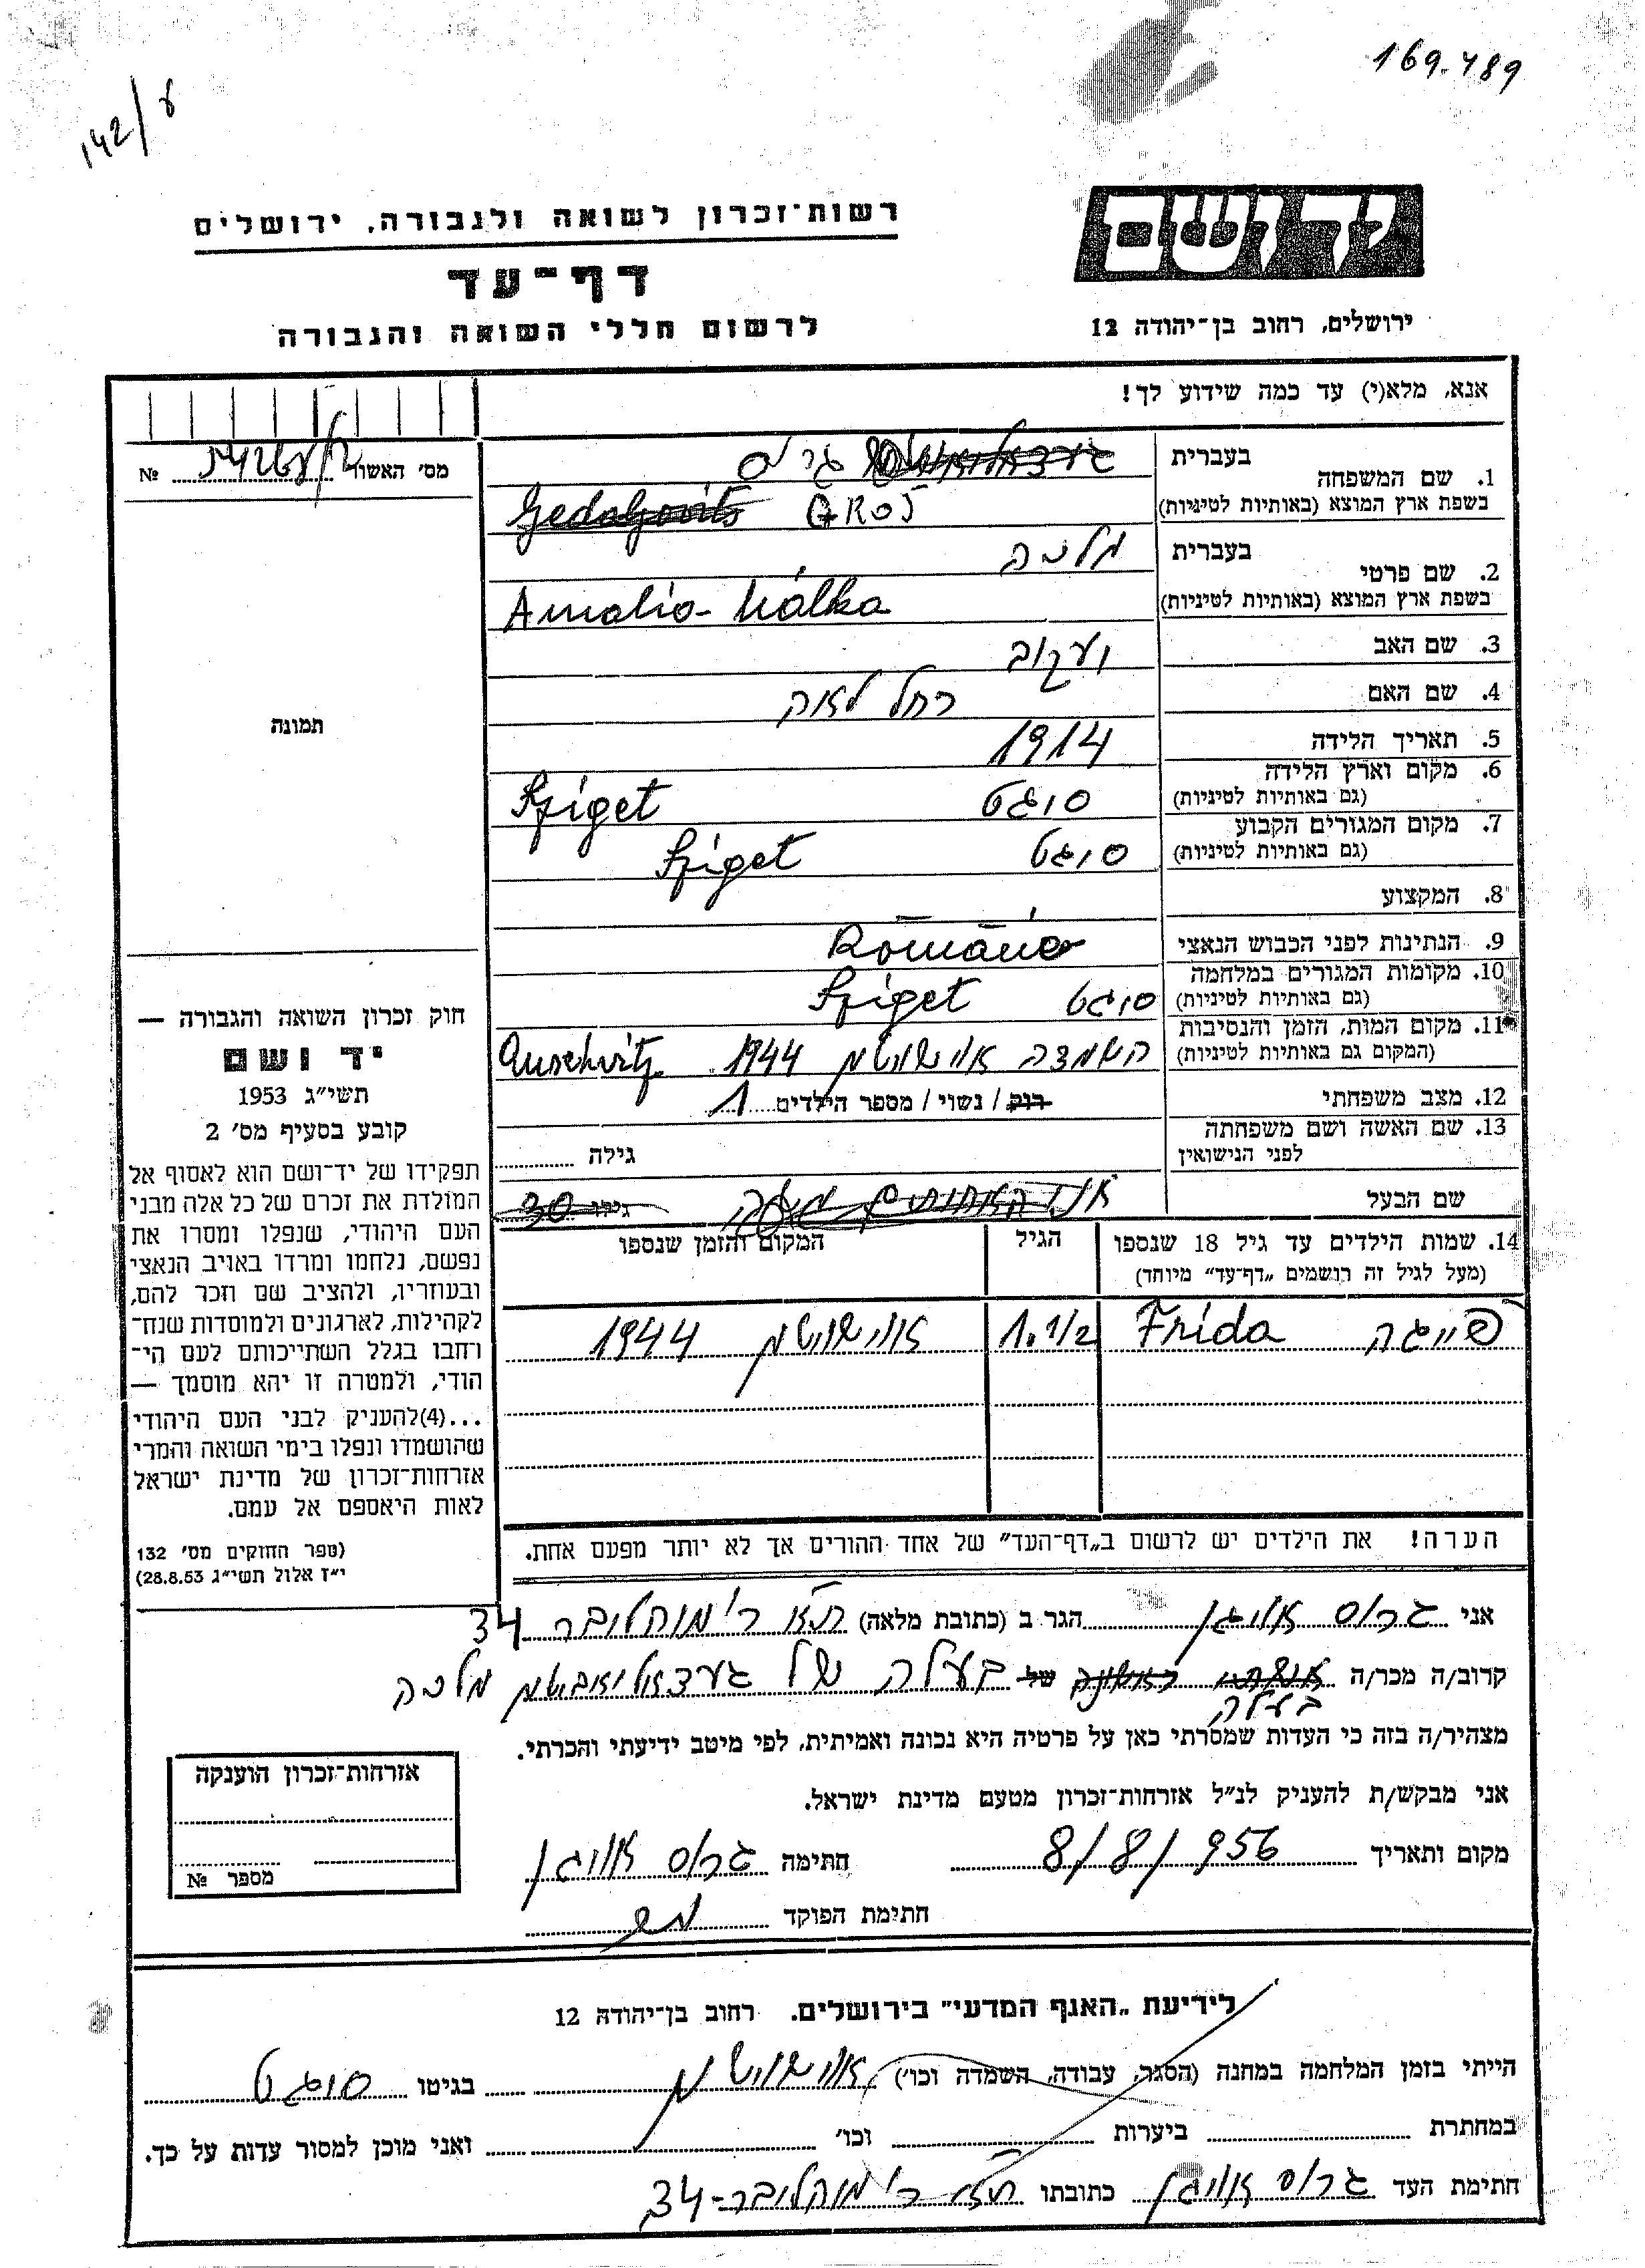 169.789
142/ע
יד ושם
רשות־זכרון לשואה ולגבורה, ירושלים
דף־עד
לרשום חללי השואה והגבורה
ירושלים, רחוב בן־יהודה 12
אנא, מלא(י) עד כמה שידוע לך!
מס' האשור №
1. שם המשפחה
בעברית גרוס
בשפת ארץ המוצא (באותיות לטיניות) Gedaljovits GROS
2. שם פרטי
בעברית מלכה
בשפת ארץ המוצא (באותיות לטיניות) Amalia- Málka
3. שם האב יעקוב
4. שם האם רחל לאה
5. תאריך הלידה 1914
6. מקום וארץ הלידה
(גם באותיות לטיניות) סיגט Sziget
7. מקום המגורים הקבוע
(גם באותיות לטיניות) סיגט Sziget
8. המקצוע
9. הנתינות לפני הכבוש הנאצי Románia
10. מקומות המגורים במלחמה
(גם באותיות לטיניות) סיגט Sziget
11. מקום המות, הזמן והנסיבות
(המקום גם באותיות לטיניות) השמדה אושוויץ 1944 Auschvitz
12. מצב משפחתי רוק / נשוי / מספר הילדים 1
13. שם האשה ושם משפחתה
לפני הנישואין גילה
שם הבעל גילו 30
14. שמות הילדים עד גיל 18 שנספו
(מעל לגיל זה רושמים „דף־עד” מיוחד)
הגיל
המקום והזמן שנספו
פייגה Frida 1.1/2 אושוויץ 1944
הערה! את הילדים יש לרשום ב„דף־העד” של אחד ההורים אך לא יותר מפעם אחת.
תמונה
חוק זכרון השואה והגבורה —
יד ושם
תשי״ג 1953
קובע בסעיף מס' 2
תפקידו של יד־ושם הוא לאסוף אל
המולדת את זכרם של כל אלה מבני
העם היהודי, שנפלו ומסרו את
נפשם, נלחמו ומרדו באויב הנאצי
ובעוזריו, ולהציב שם וזכר להם,
לקהילות, לארגונים ולמוסדות שנח־
רחבו בגלל השתייכותם לעם הי־
הודי, ולמטרה זו יהא מוסמך —
...(4)להעניק לבני העם היהודי
שהושמדו ונפלו בימי השואה והמרי
אזרחות־זכרון של מדינת ישראל
לאות היאספם אל עמם.
(ספר החוקים מס' 132
י״ז אלול תשי״ג 28.8.53)
אני גרוס אויגן הגר ב (כתובת מלאה) ת״א ר' מוהליבר 34
קרוב/ה מכר/ה של בעלה של מלכה
בעלה
מצהיר/ה בזה כי העדות שמסרתי כאן על פרטיה היא נכונה ואמיתית, לפי מיטב ידיעתי והכרתי.
אני מבקש/ת להעניק לנ״ל אזרחות־זכרון מטעם מדינת ישראל.
מקום ותאריך 8/8/956 חתימה גרוס אויגן
חתימת הפוקד
אזרחות־זכרון הוענקה
מספר №
לידיעת „האגף המדעי” בירושלים. רחוב בן־יהודה 12
הייתי בזמן המלחמה במחנה (הסגר, עבודה, השמדה וכו') אושוויץ בגיטו סיגט
במחתרת ביערות וכו' ואני מוכן למסור עדות על כך.
חתימת העד גרוס אויגן כתובתו ת״א ר' מוהליבר-34